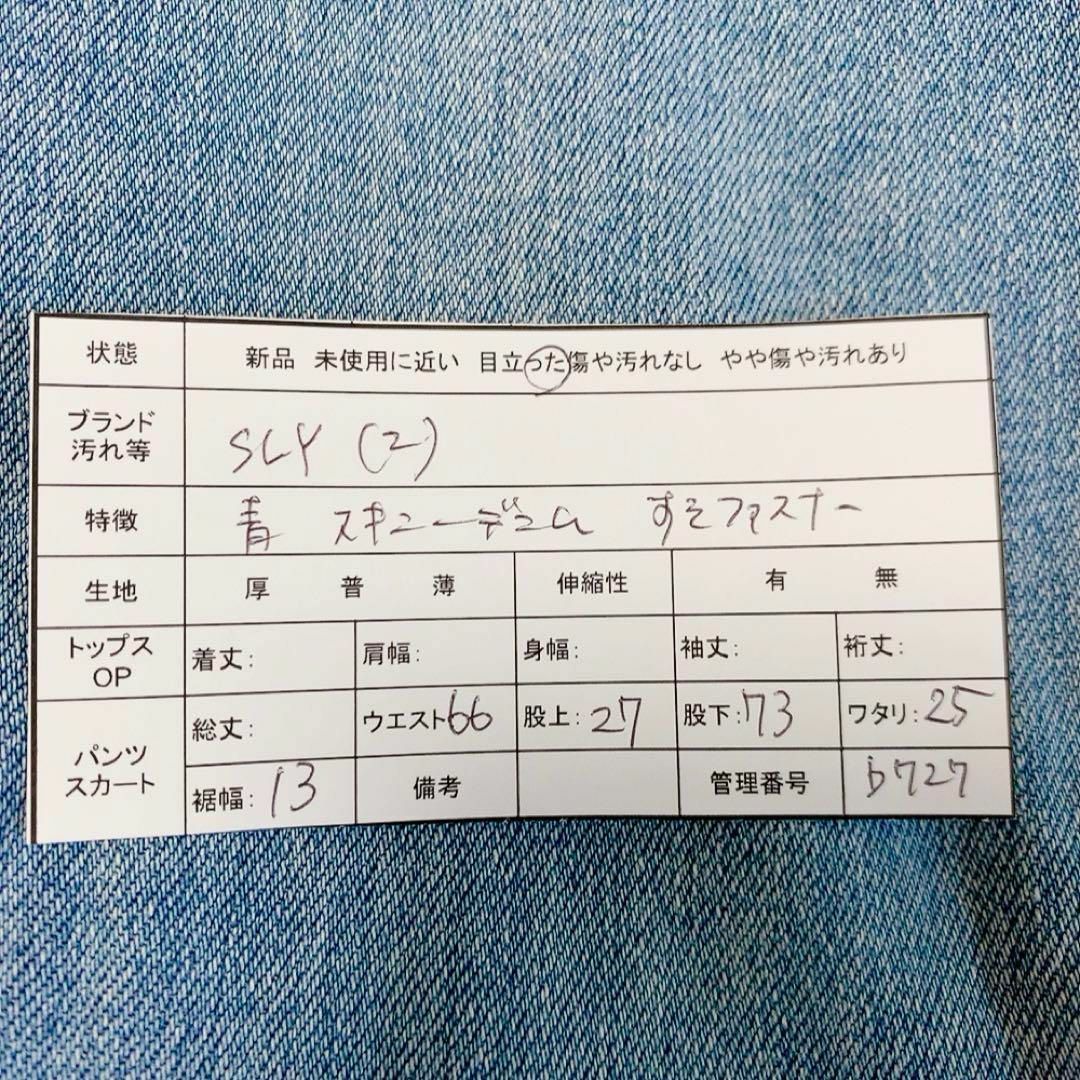 状態 新品 未使用に近い 目立った傷や汚れなし やや傷や汚れあり
ブランド
汚れ等 SLY (2)
特徴 青 スキニーデニム すそファスナー
生地 厚 普 薄 伸縮性 有 無
トップス
OP 着丈: 肩幅: 身幅: 袖丈: 裄丈:
パンツ
スカート 総丈: ウエスト66 股上:27 股下:73 ワタリ:25
裾幅:13 備考 管理番号 b727